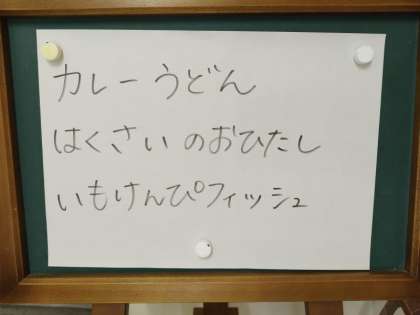 カレーうどん
はくさいのおひたし
いもけんぴフィッシュ